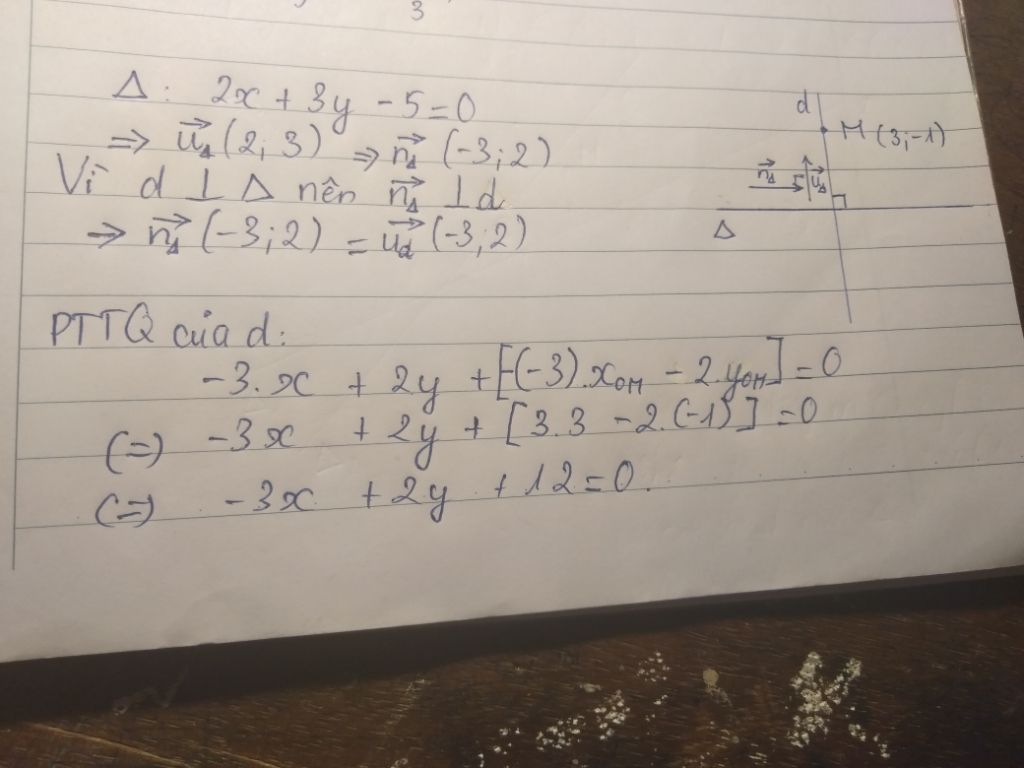 3
Δ: 2x + 3y - 5 = 0
=> u⃗_Δ (2; 3) => n⃗_Δ (-3; 2)
Vì d ⊥ Δ nên n⃗_Δ ⊥ d
=> n⃗_Δ (-3; 2) = u⃗_d (-3; 2)
d
M (3; -1)
n⃗_Δ
u⃗_Δ
Δ
PTTQ của d:
-3.x + 2y + [-(-3).x_OM - 2.y_OM] = 0
(=) -3x + 2y + [3.3 - 2.(-1)] = 0
(=) -3x + 2y + 12 = 0.